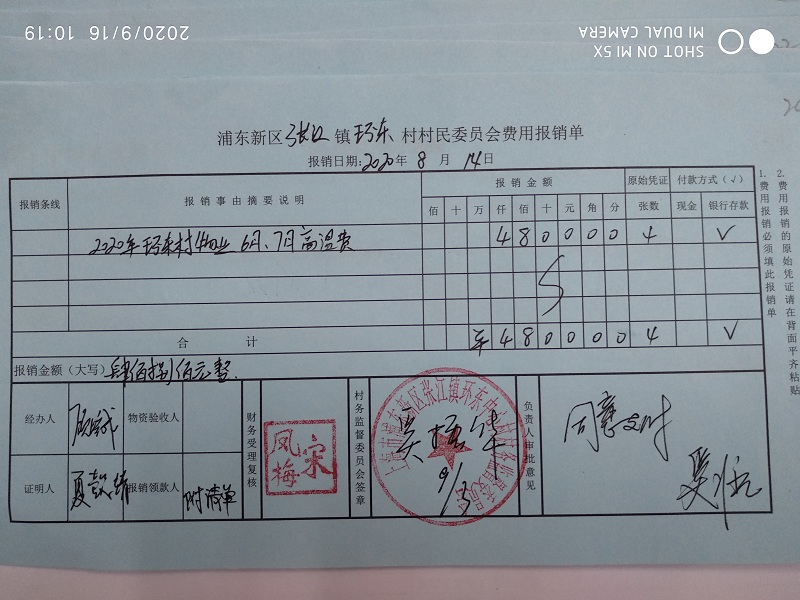 2020/9/16 10:19
SHOT ON MI 5X
MI DUAL CAMERA
浦东新区张江镇环东村村民委员会费用报销单
报销日期:2020年8月14日
报销条线 报销事由摘要说明 报销金额 原始凭证 付款方式(√)
佰 十 万 仟 佰 十 元 角 分 张数 现金 银行存款
2020年环东村物业6月、7月高温费 4 8 0 0 0 0 4 √
合计 4 8 0 0 0 0 4 √
报销金额(大写) 肆仟捌佰元整
经办人 物资验收人
财务受理复核
宋凤梅
村务监督委员会签章
9/3
负责人审批意见
同意支付
证明人 报销领款人 附清单
1. 费用报销必须填此报销单
2. 费用报销的原始凭证请在背面平齐粘贴